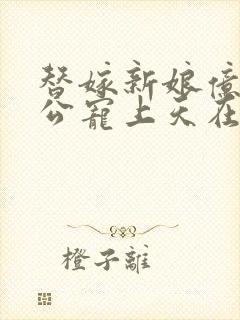 替嫁新娘億
公寵上天在
橙子離